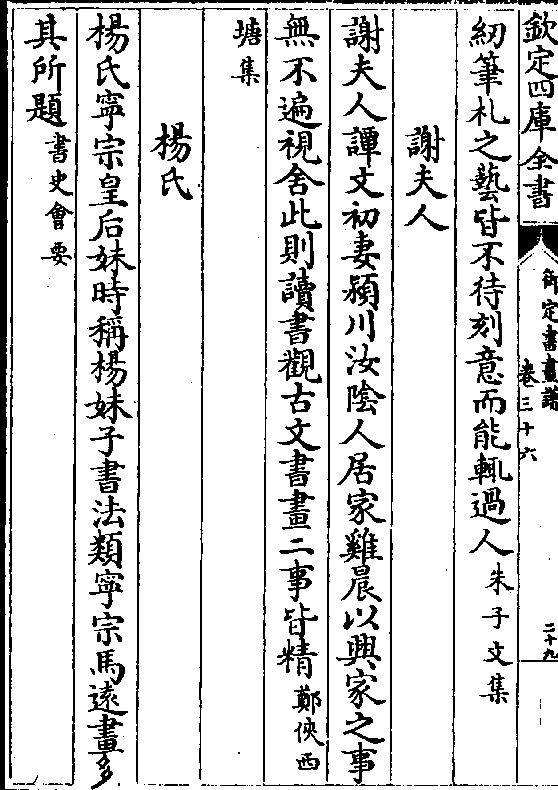 欽定四庫全書
御定書畫譜
卷三十六
二十九
紉筆札之藝皆不待刻意而能輒過人朱子文集
謝夫人
謝夫人譚文初妻潁川汝陰人居家雞晨以興家之事
無不遍視舍此則讀書觀古文書畫二事皆精鄭俠西
塘集
楊氏
楊氏寧宗皇后妹時稱楊妹子書法類寧宗馬遠畫多
其所題書史會要